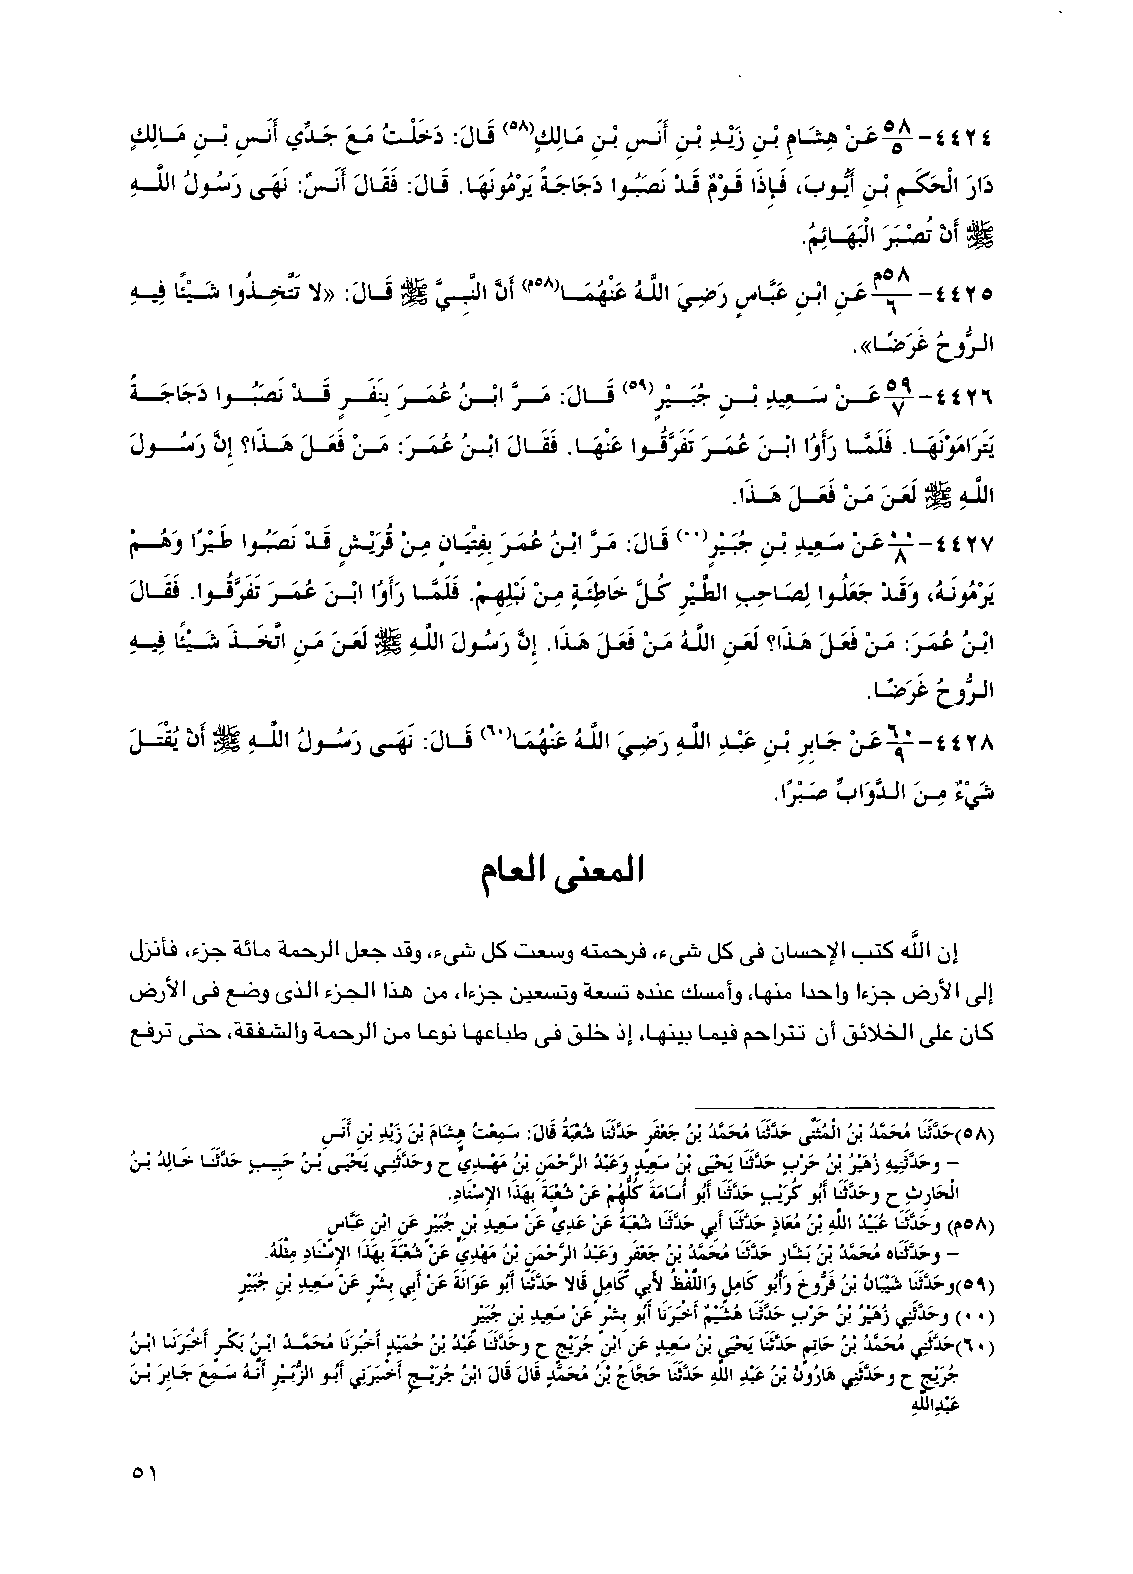 ٤٤٢٤- ٥٨/٥ عَنْ هِشَامِ بْنِ زَيْدِ بْنِ أَنَسِ بْنِ مَالِكٍ(٥٨) قَالَ: دَخَلْتُ مَعَ جَدِّي أَنَسِ بْنِ مَالِكٍ
دَارَ الْحَكَمِ بْنِ أَيُّوبَ، فَإِذَا قَوْمٌ قَدْ نَصَبُوا دَجَاجَةً يَرْمُونَهَا. قَالَ: فَقَالَ أَنَسٌ: نَهَى رَسُولُ اللَّهِ
ﷺ أَنْ تُصْبَرَ الْبَهَائِمُ.
٤٤٢٥- ٥٨م/٦ عَنِ ابْنِ عَبَّاسٍ رَضِيَ اللَّهُ عَنْهُمَا(٥٨م) أَنَّ النَّبِيَّ ﷺ قَالَ: «لا تَتَّخِذُوا شَيْئًا فِيهِ
الرُّوحُ غَرَضًا».
٤٤٢٦- ٥٩/٧ عَنْ سَعِيدِ بْنِ جُبَيْرٍ(٥٩) قَالَ: مَرَّ ابْنُ عُمَرَ بِنَفَرٍ قَدْ نَصَبُوا دَجَاجَةً
يَتَرَامَوْنَهَا. فَلَمَّا رَأَوُا ابْنَ عُمَرَ تَفَرَّقُوا عَنْهَا. فَقَالَ ابْنُ عُمَرَ: مَنْ فَعَلَ هَذَا؟ إِنَّ رَسُولَ
اللَّهِ ﷺ لَعَنَ مَنْ فَعَلَ هَذَا.
٤٤٢٧- ٠٠/٨ عَنْ سَعِيدِ بْنِ جُبَيْرٍ(٠٠) قَالَ: مَرَّ ابْنُ عُمَرَ بِفِتْيَانٍ مِنْ قُرَيْشٍ قَدْ نَصَبُوا طَيْرًا وَهُمْ
يَرْمُونَهُ، وَقَدْ جَعَلُوا لِصَاحِبِ الطَّيْرِ كُلَّ خَاطِئَةٍ مِنْ نَبْلِهِمْ. فَلَمَّا رَأَوُا ابْنَ عُمَرَ تَفَرَّقُوا. فَقَالَ
ابْنُ عُمَرَ: مَنْ فَعَلَ هَذَا؟ لَعَنِ اللَّهُ مَنْ فَعَلَ هَذَا. إِنَّ رَسُولَ اللَّهِ ﷺ لَعَنَ مَنِ اتَّخَذَ شَيْئًا فِيهِ
الرُّوحُ غَرَضًا.
٤٤٢٨- ٦٠/٩ عَنْ جَابِرِ بْنِ عَبْدِ اللَّهِ رَضِيَ اللَّهُ عَنْهُمَا(٦٠) قَالَ: نَهَى رَسُولُ اللَّهِ ﷺ أَنْ يُقْتَلَ
شَيْءٌ مِنَ الدَّوَابِّ صَبْرًا.
المعنى العام
إن اللَّه كتب الإحسان فى كل شىء، فرحمته وسعت كل شىء، وقد جعل الرحمة مائة جزء، فأنزل
إلى الأرض جزءا واحدا منها، وأمسك عنده تسعة وتسعين جزءا، من هذا الجزء الذى وضع فى الأرض
كان على الخلائق أن تتراحم فيما بينها، إذ خلق فى طباعها نوعا من الرحمة والشفقة، حتى ترفع
(٥٨)حَدَّثَنَا مُحَمَّدُ بْنُ الْمُثَنَّى حَدَّثَنَا مُحَمَّدُ بْنُ جَعْفَرٍ حَدَّثَنَا شُعْبَةُ قَالَ: سَمِعْتُ هِشَامَ بْنَ زَيْدِ بْنِ أَنَسٍ
– وحَدَّثَنِيهِ زُهَيْرُ بْنُ حَرْبٍ حَدَّثَنَا يَحْيَى بْنُ سَعِيدٍ وَعَبْدُ الرَّحْمَنِ بْنُ مَهْدِيٍّ ح وحَدَّثَنِي يَحْيَى بْنُ حَبِيبٍ حَدَّثَنَا خَالِدُ بْنُ
الْحَارِثِ ح وحَدَّثَنَا أَبُو كُرَيْبٍ حَدَّثَنَا أَبُو أُسَامَةَ كُلُّهُمْ عَنْ شُعْبَةَ بِهَذَا الإِسْنَادِ.
(٥٨م) وحَدَّثَنَا عُبَيْدُ اللَّهِ بْنُ مُعَاذٍ حَدَّثَنَا أَبِي حَدَّثَنَا شُعْبَةُ عَنْ عَدِيٍّ عَنْ سَعِيدِ بْنِ جُبَيْرٍ عَنِ ابْنِ عَبَّاسٍ
– وحَدَّثَنَاه مُحَمَّدُ بْنُ بَشَّارٍ حَدَّثَنَا مُحَمَّدُ بْنُ جَعْفَرٍ وَعَبْدُ الرَّحْمَنِ بْنُ مَهْدِيٍّ عَنْ شُعْبَةَ بِهَذَا الإِسْنَادِ مِثْلَهُ.
(٥٩)وحَدَّثَنَا شَيْبَانُ بْنُ فَرُّوخَ وَأَبُو كَامِلٍ وَاللَّفْظُ لأَبِي كَامِلٍ قَالا حَدَّثَنَا أَبُو عَوَانَةَ عَنْ أَبِي بِشْرٍ عَنْ سَعِيدِ بْنِ جُبَيْرٍ
(٠٠) وحَدَّثَنِي زُهَيْرُ بْنُ حَرْبٍ حَدَّثَنَا هُشَيْمٌ أَخْبَرَنَا أَبُو بِشْرٍ عَنْ سَعِيدِ بْنِ جُبَيْرٍ
(٦٠)حَدَّثَنِي مُحَمَّدُ بْنُ حَاتِمٍ حَدَّثَنَا يَحْيَى بْنُ سَعِيدٍ عَنِ ابْنِ جُرَيْجٍ ح وحَدَّثَنَا عَبْدُ بْنُ حُمَيْدٍ أَخْبَرَنَا مُحَمَّدُ ابْنُ بَكْرٍ أَخْبَرَنَا ابْنُ
جُرَيْجٍ ح وحَدَّثَنِي هَارُونُ بْنُ عَبْدِ اللَّهِ حَدَّثَنَا حَجَّاجُ بْنُ مُحَمَّدٍ قَالَ قَالَ ابْنُ جُرَيْجٍ أَخْبَرَنِي أَبُو الزُّبَيْرِ أَنَّهُ سَمِعَ جَابِرَ بْنَ
عَبْدِاللَّهِ
٥١